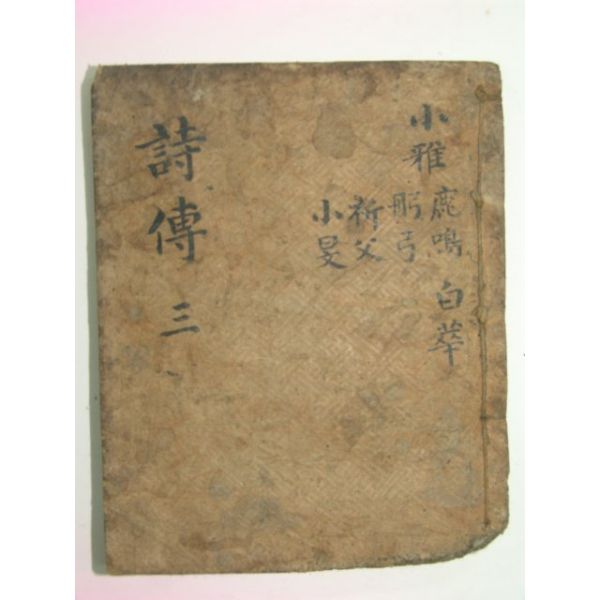 小雅
鹿鳴 白華
彤弓
祈父
小旻
詩傳 三